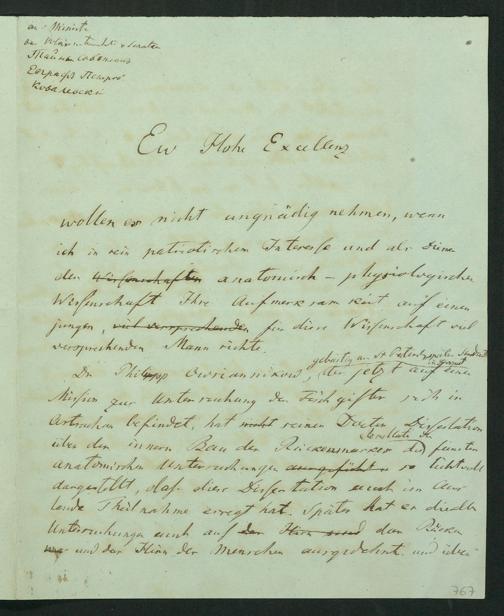 an Minister
Тайный совѣтник
Евграфъ Петров
Ковалевскій
Ew Hohe Excellenz
wollen es nicht ungnädig nehmen, wenn
ich in rein patriotischem Interesse und als Diener
der Wissenschaften anatomisch-physiologischen
Wissenschaft Ihre Aufmerksamkeit auf einen
jungen, viel versprechenden für diese Wissenschaft viel
versprechenden Mann richte.
gebürtig aus St Petersburg
Dr Philipp Owsiannikow, der jetzt auf einer
Mission zur Untersuchung der Fischgifter sich in
Astrachan befindet, hat nicht seinen Doctor Dissertation
über den innern Bau des Rückenmarkes die feinsten
anatomischen Untersuchungen ausgeführt so lichtvoll
dargestellt, daß diese Dissertation auch im Aus
lande Theilnahme erregt hat. Später hat er dieselben
Untersuchungen auch auf das Hirn und den Rücken
und das Hirn der Menschen ausgedehnt und über
767